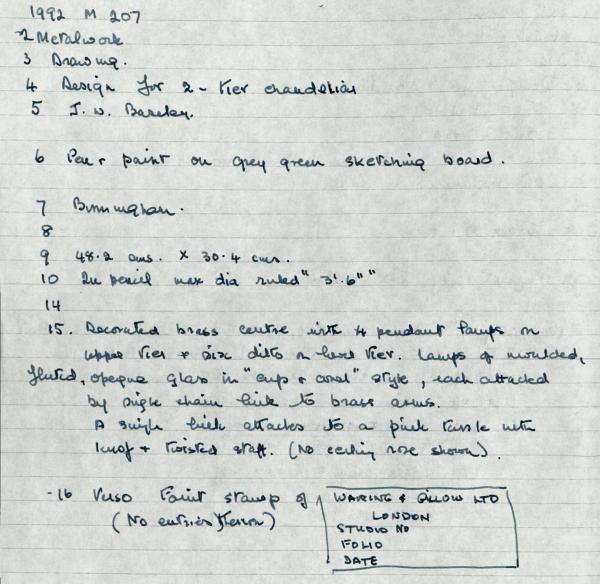 1992 M 207
2 Metalwork
3 Drawing.
4 Design for 2-tier chandelier
5 J. W. Barclay.
6 Pen & paint on grey green sketching board.
7 Birmingham.
8
9 48.2 cms. x 30.4 cms.
10 In pencil max dia ruled "3'.6""
14
15. Decorated brass centre with 4 pendant lamps on
upper tier & six ditto on lower tier. Lamps of moulded,
fluted, opaque glass in "cup & coral" style, each attached
by single chain link to brass arms.
A single link attaches to a pink tassle with
knof & twisted staff. (No ceiling rose shown).
-16 Verso Faint stamp of WARING & GILLOW LTD
(No entries thereon) LONDON
STUDIO NO
FOLIO
DATE